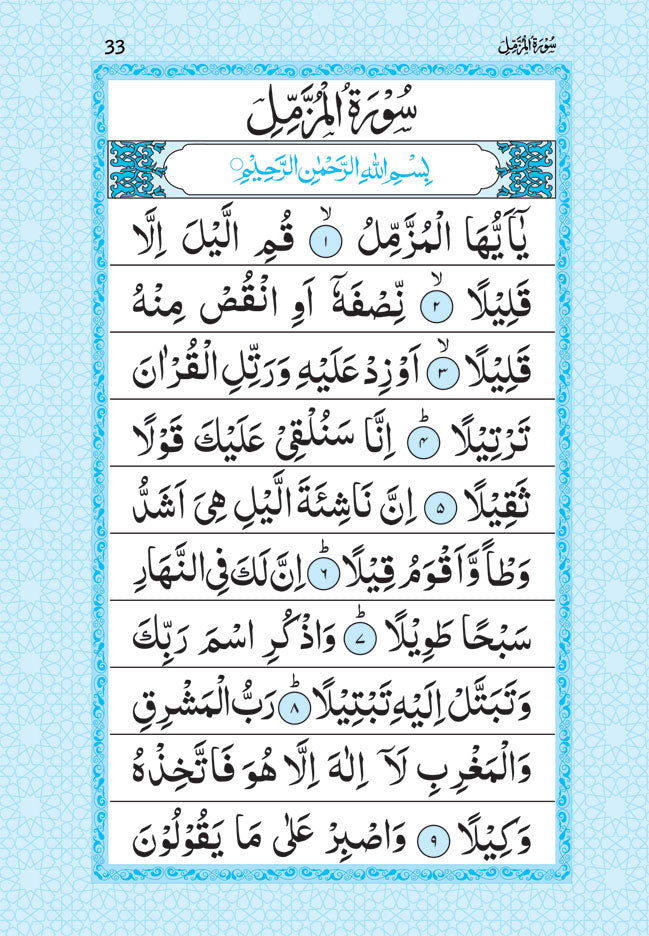 33 سُوْرَةُ الْمُزَّمِّلِ
سُوْرَةُ الْمُزَّمِّلِ
بِسْمِ اللهِ الرَّحْمٰنِ الرَّحِيْمِ
يٰٓاَيُّهَا الْمُزَّمِّلُ ۙ﴿۱﴾ قُمِ الَّيْلَ اِلَّا
قَلِيْلًا ۙ﴿۲﴾ نِّصْفَهٗٓ اَوِ انْقُصْ مِنْهُ
قَلِيْلًا ۙ﴿۳﴾ اَوْزِدْ عَلَيْهِ وَرَتِّلِ الْقُرْاٰنَ
تَرْتِيْلًا ؕ﴿۴﴾ اِنَّا سَنُلْقِيْ عَلَيْكَ قَوْلًا
ثَقِيْلًا ﴿۵﴾ اِنَّ نَاشِئَةَ الَّيْلِ هِيَ اَشَدُّ
وَطْاً وَّاَقْوَمُ قِيْلًا ؕ﴿۶﴾ اِنَّ لَكَ فِي النَّهَارِ
سَبْحًا طَوِيْلًا ؕ﴿۷﴾ وَاذْكُرِ اسْمَ رَبِّكَ
وَتَبَتَّلْ اِلَيْهِ تَبْتِيْلًا ؕ﴿۸﴾ رَبُّ الْمَشْرِقِ
وَالْمَغْرِبِ لَآ اِلٰهَ اِلَّا هُوَ فَاتَّخِذْهُ
وَكِيْلًا ﴿۹﴾ وَاصْبِرْ عَلٰى مَا يَقُوْلُوْنَ